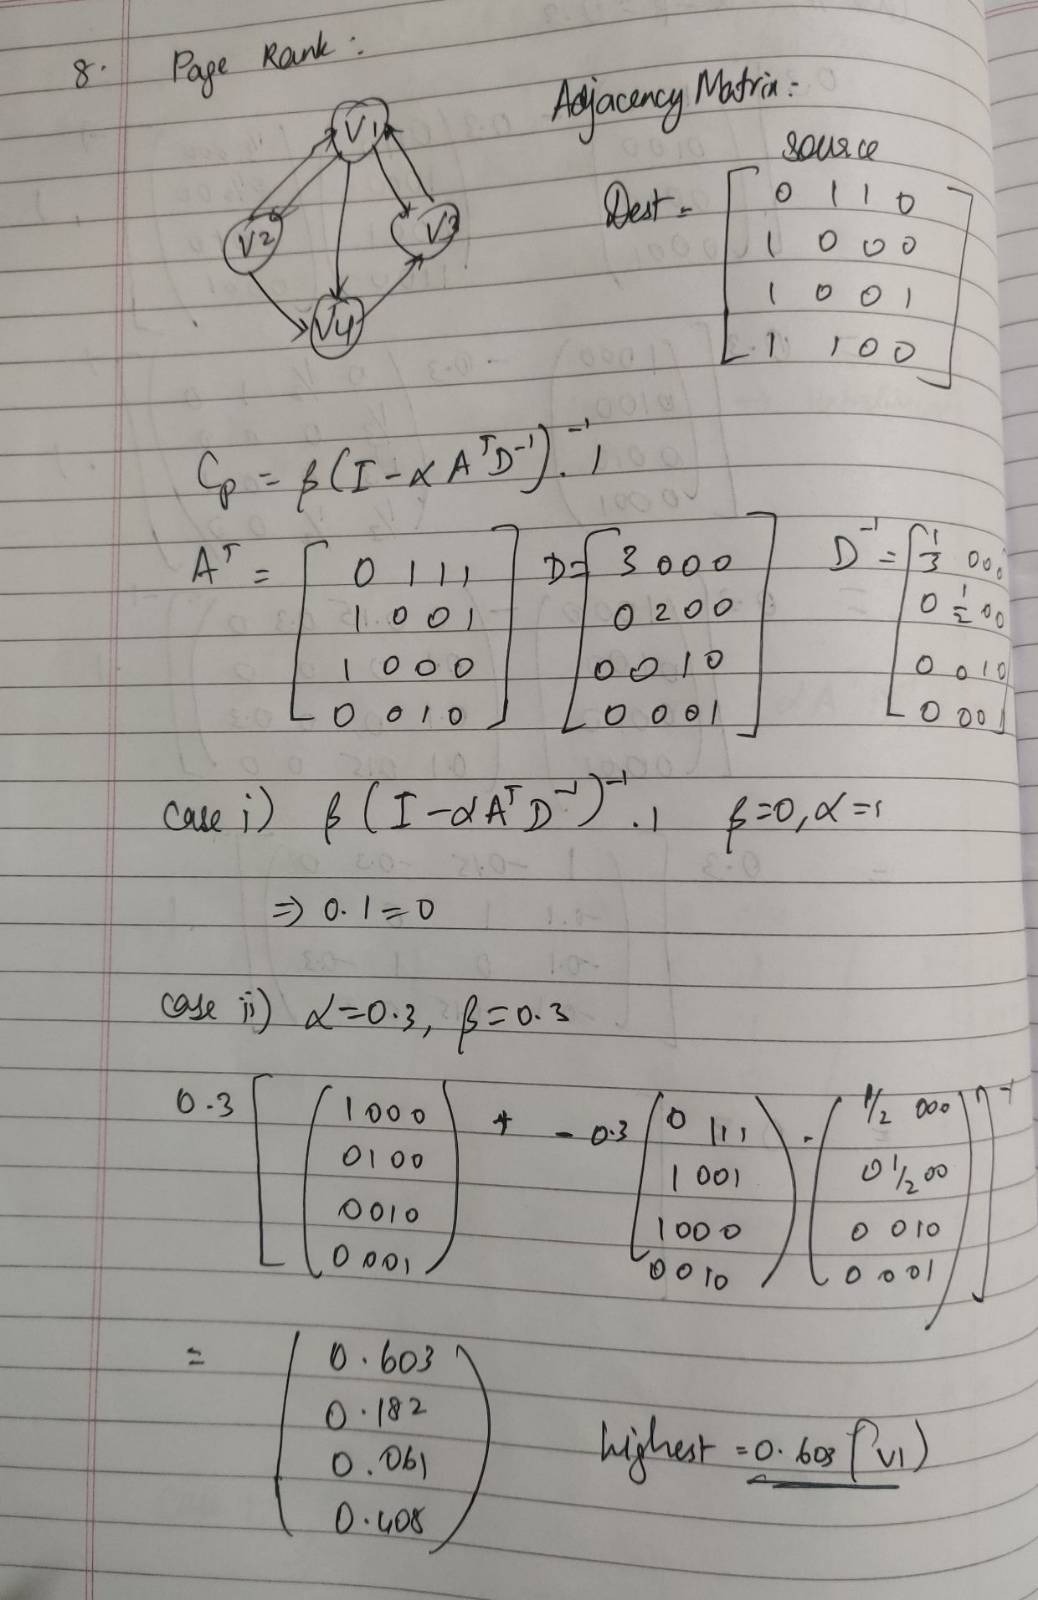 8. Page Rank :
V1
V2
V3
V4
Adjacency Matrix :-
source
Dest = [ 0 1 1 0
1 0 0 0
1 0 0 1
1 1 0 0 ]
Cp = β (I - α AᵀD⁻¹)⁻¹ . 1
Aᵀ = [ 0 1 1 1 ] D = [ 3 0 0 0 ] D⁻¹ = [ 1/3 0 0 0
1 0 0 1 0 2 0 0 0 1/2 0 0
1 0 0 0 0 0 1 0 0 0 1 0
0 0 1 0 0 0 0 1 0 0 0 1 ]
case i) β (I - α AᵀD⁻¹)⁻¹ . 1 β = 0, α = 1
⇒ 0.1 = 0
case ii) α = 0.3, β = 0.3
0.3 [ ( 1 0 0 0 ) + - 0.3 ( 0 1 1 1 ) . ( 1/2 0 0 0 ) ]⁻¹
0 1 0 0 1 0 0 1 0 1/2 0 0
0 0 1 0 1 0 0 0 0 0 1 0
0 0 0 1 0 0 1 0 0 0 0 1
= ( 0.603
0.182
0.061
0.408 )
highest = 0.603 (V1)